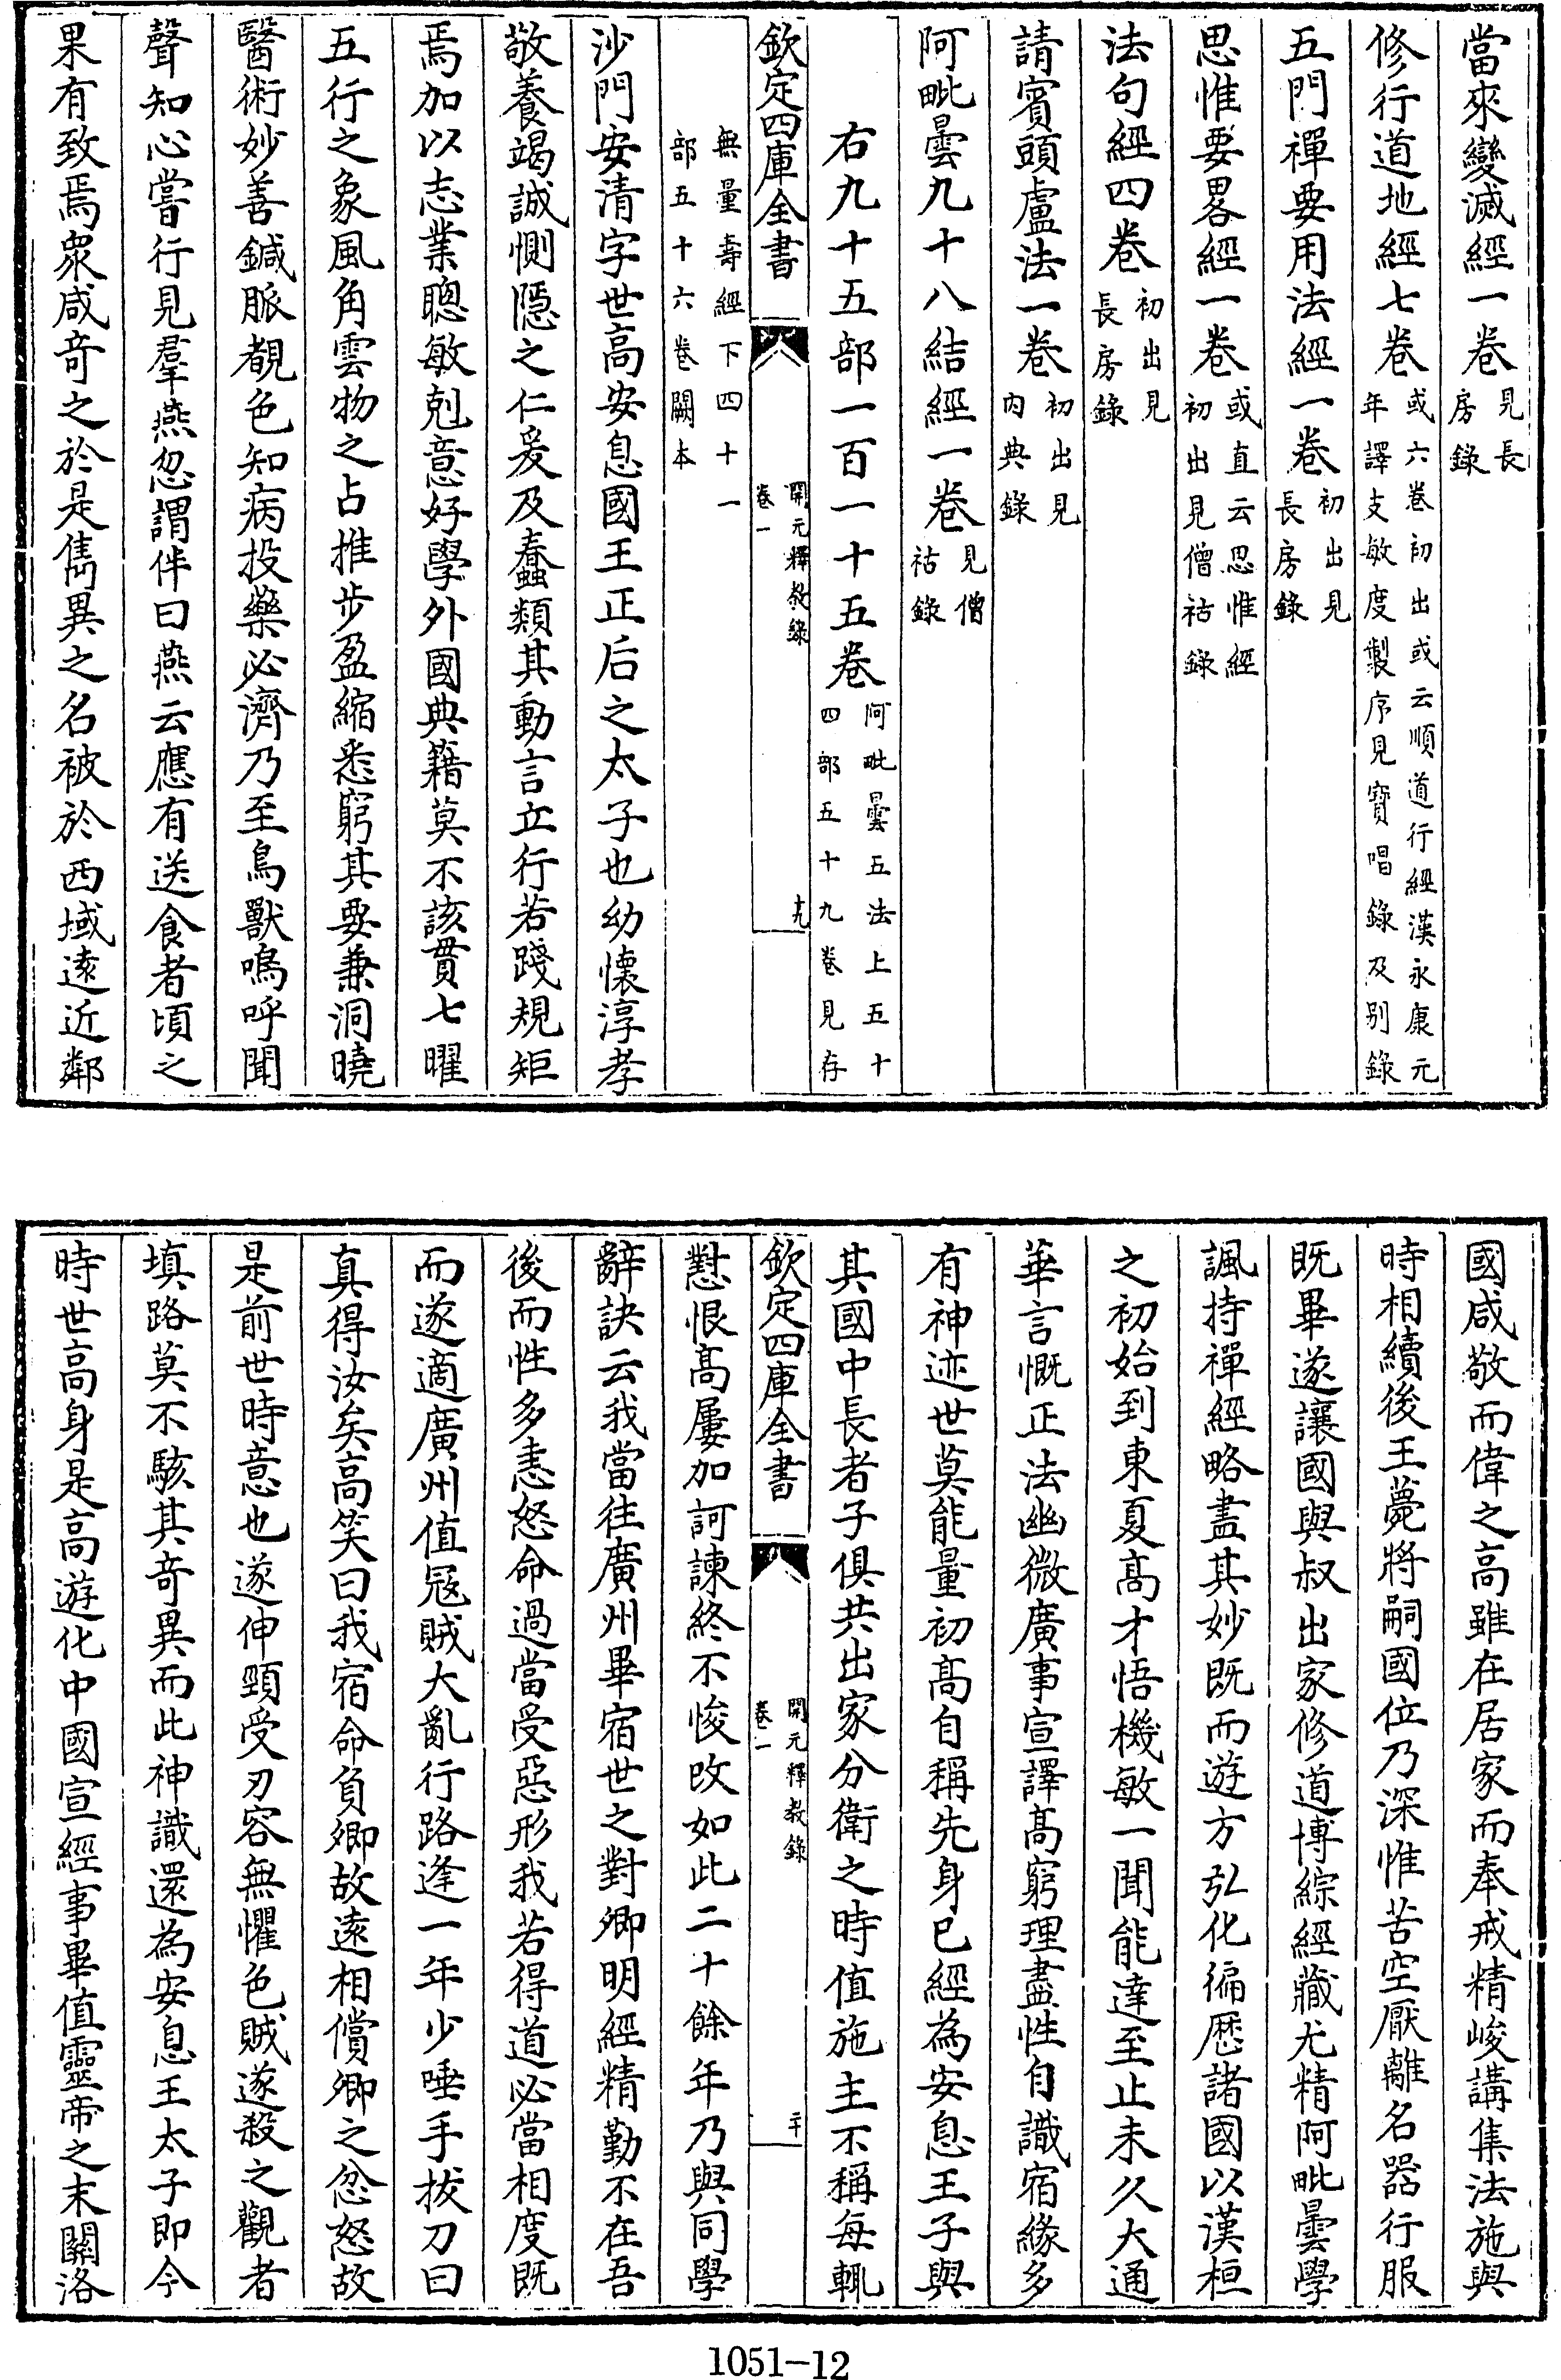 當來變滅經一卷見長房錄
修行道地經七卷或六卷初出或云順道行經漢永康元年譯支敏度製序見寶唱錄及别錄
五門禪要用法經一卷初出見長房錄
思惟要畧經一卷或直云思惟經初出見僧祐錄
法句經四卷初出見長房錄
請賓頭盧法一卷初出見內典錄
阿毗曇九十八結經一卷見僧祐錄
右九十五部一百一十五卷阿毗曇五法上五十四部五十九卷見存
欽定四庫全書 開元釋教錄 卷一 十九
無量壽經下四十一部五十六卷闕本
沙門安清字世高安息國王正后之太子也幼懷淳孝
敬養竭誠惻隱之仁爰及蠢類其動言立行若踐規矩
焉加以志業聰敏剋意好學外國典籍莫不該貫七曜
五行之象風角雲物之占推步盈縮悉窮其要兼洞曉
醫術妙善鍼脈覩色知病投藥必濟乃至鳥獸鳴呼聞
聲知心嘗行見羣燕忽謂伴曰燕云應有送食者頃之
果有致焉衆咸奇之於是雋異之名被於西域遠近鄰
國咸敬而偉之高雖在居家而奉戒精峻講集法施與
時相續後王薨將嗣國位乃深惟苦空厭離名器行服
既畢遂讓國與叔出家修道博綜經藏尤精阿毗曇學
諷持禪經略盡其妙既而遊方弘化徧歷諸國以漢桓
之初始到東夏髙才悟機敏一聞能達至止未久大通
華言慨正法幽微廣事宣譯髙窮理盡性自識宿緣多
有神迹世莫能量初髙自稱先身已經為安息王子與
其國中長者子俱共出家分衛之時值施主不稱每輒
欽定四庫全書 開元釋教錄 卷一 二十
懟恨髙屢加訶諫終不悛改如此二十餘年乃與同學
辭訣云我當往廣州畢宿世之對卿明經精勤不在吾
後而性多恚怒命過當受惡形我若得道必當相度既
而遂適廣州值冦賊大亂行路逢一年少唾手拔刀曰
真得汝矣高笑曰我宿命負卿故遠相償卿之忿怒故
是前世時意也遂伸頸受刃容無懼色賊遂殺之觀者
填路莫不駭其奇異而此神識還為安息王太子即今
時世高身是高遊化中國宣經事畢值靈帝之末關洛
1051-12